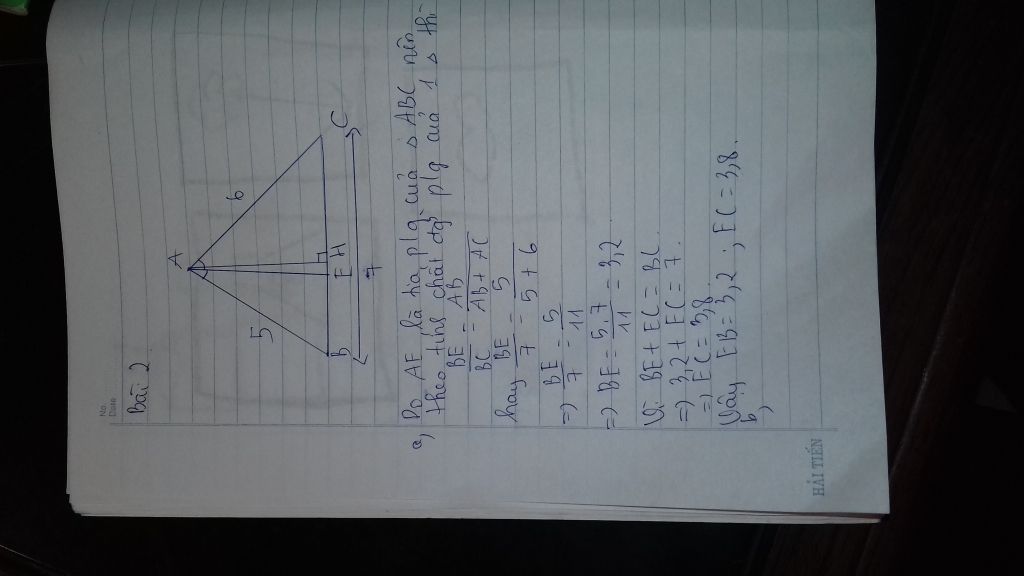 No.
Date
Bài 2
A
5
6
B
E
H
C
7
a) Do AE là tia p/g của △ ABC nên
theo tính chất đg` p/g của 1 △ thì
BE/BC = AB/AB + AC
hay BE/7 = 5/5 + 6
=> BE/7 = 5/11
=> BE = 5.7/11 = 3,2
Vì BE + EC = BC
=> 3,2 + EC = 7.
=> EC = 3,8
Vậy EB = 3,2 ; EC = 3,8.
b,
HẢI TIẾN